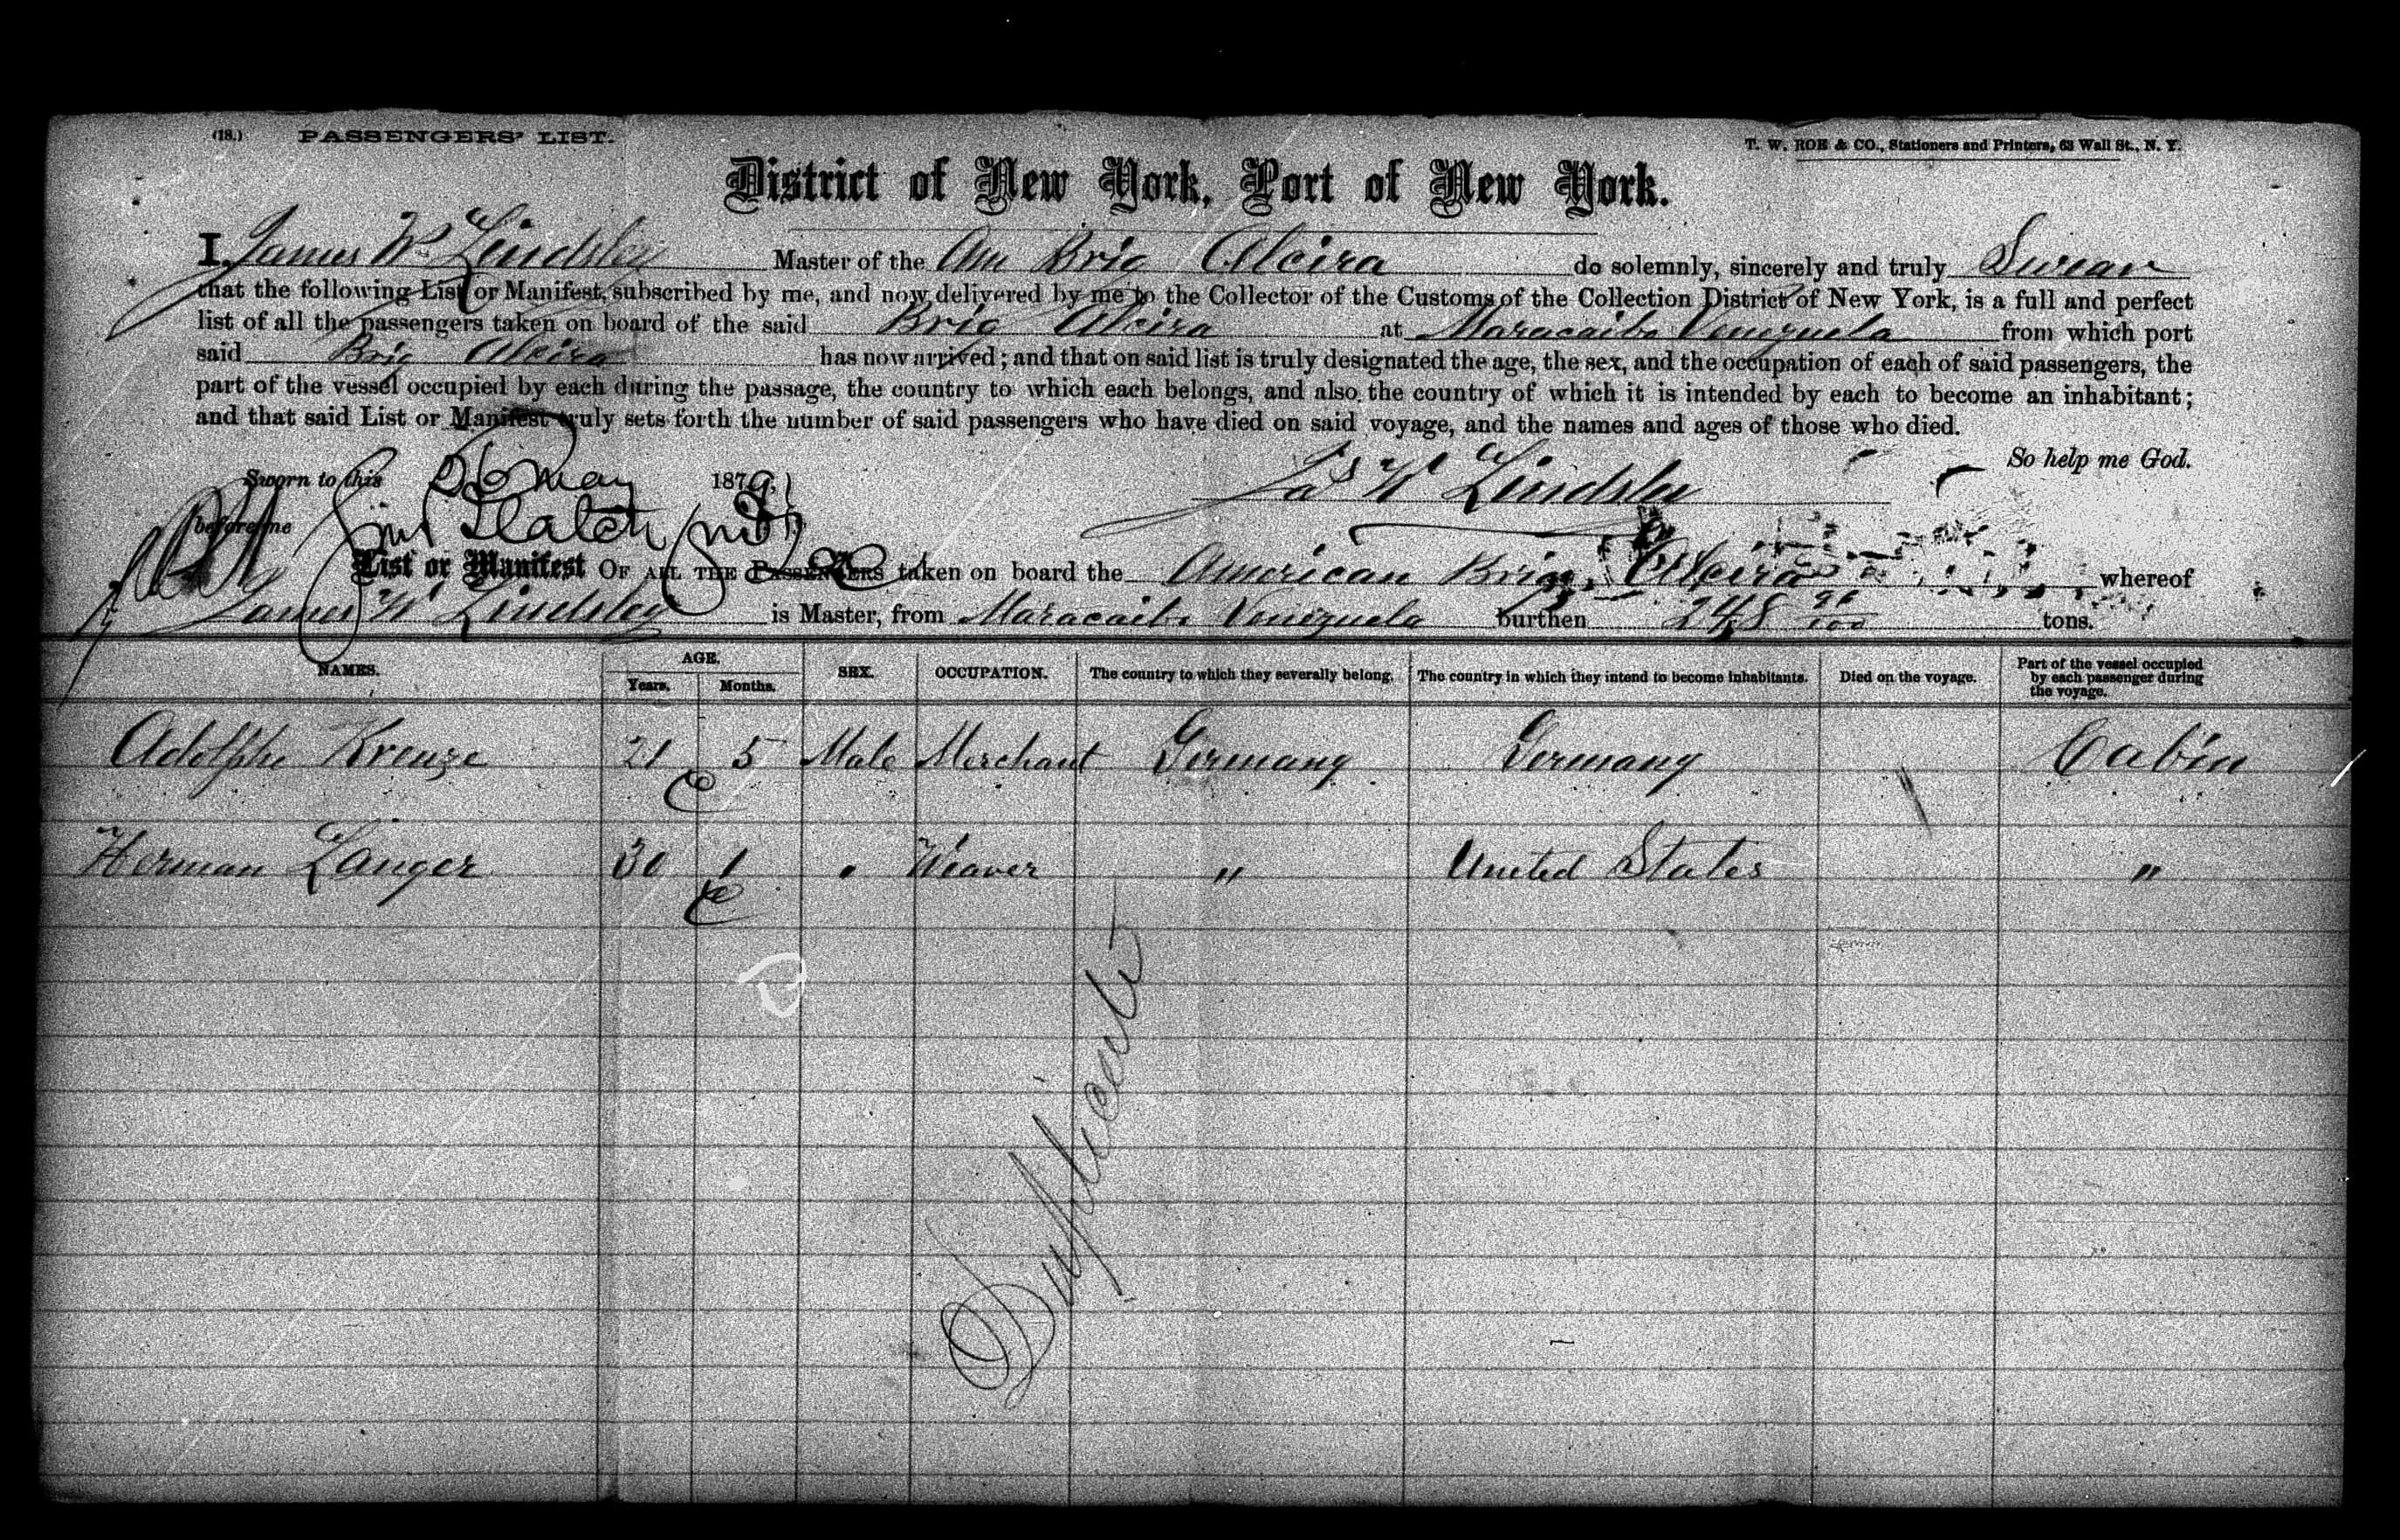 (18.) PASSENGERS' LIST.
T. W. ROE & CO., Stationers and Printers, 63 Wall St., N. Y.
District of New York, Port of New York.
I, James W. Lindsley Master of the Am Brig Alcira do solemnly, sincerely and truly Swear
that the following List or Manifest, subscribed by me, and now delivered by me to the Collector of the Customs of the Collection District of New York, is a full and perfect
list of all the passengers taken on board of the said Brig Alcira at Maracaibo Venezuela from which port
said Brig Alcira has now arrived; and that on said list is truly designated the age, the sex, and the occupation of each of said passengers, the
part of the vessel occupied by each during the passage, the country to which each belongs, and also the country of which it is intended by each to become an inhabitant;
and that said List or Manifest truly sets forth the number of said passengers who have died on said voyage, and the names and ages of those who died.
So help me God.
Sworn to this 26 May 1879
Jas W Lindsley
before me
List or Manifest OF ALL THE PASSENGERS taken on board the American Brig Alcira whereof
James W Lindsley is Master, from Maracaibo Venezuela burthen 248 96/100 tons.
NAMES. AGE. Years. Months. SEX. OCCUPATION. The country to which they severally belong. The country in which they intend to become inhabitants. Died on the voyage. Part of the vessel occupied by each passenger during the voyage.
Adolphe Kreuze 21 5 Male Merchant Germany Germany Cabin
Herman Langer 30 1 " Weaver " United States "
Duplicate